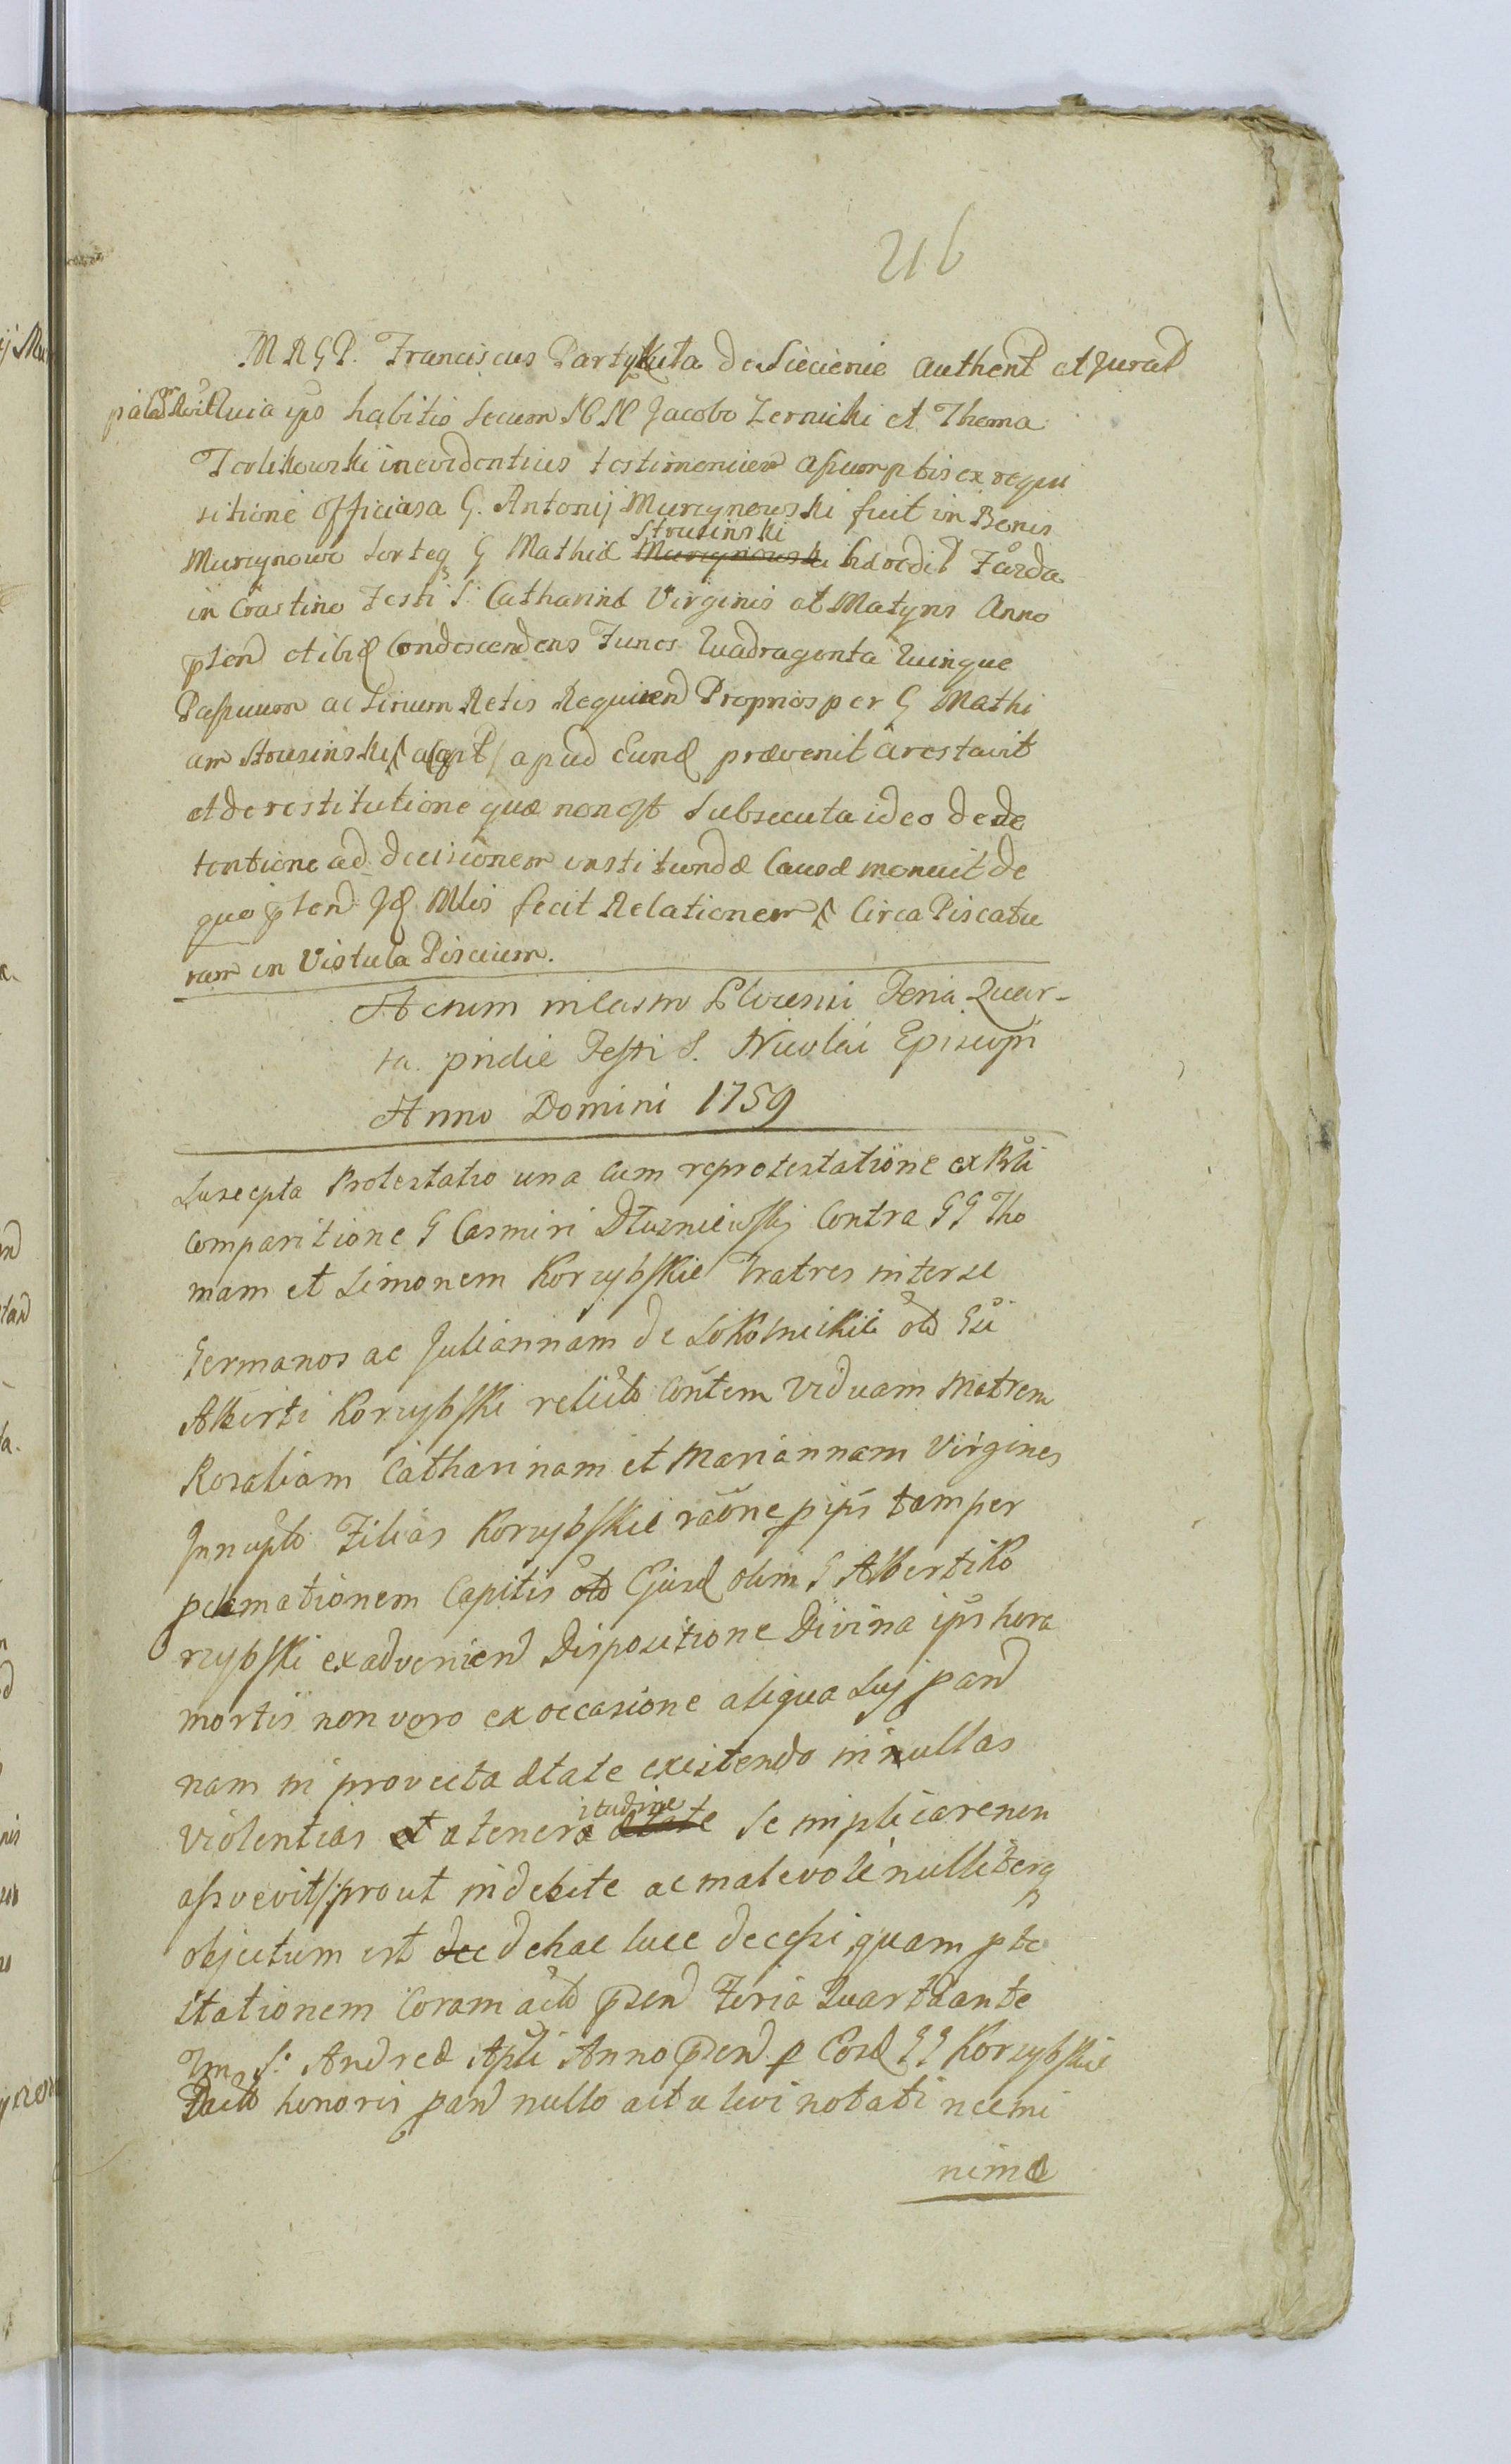 216
MRGP. Franciscus Partykuła de Siecienie authent et jurat
Quia ipso habitis secum NN Jacobo Zernicki et Thoma
Terlikowski in evidentius testimonium assumptis ex requi
sitione officiosa G. Antonij Murzynowski fuit in Bonis
Strusinski
Murzynowo Sorteq G Mathiæ Murzynowski hæredit
in Crastino Festi S. Catharinæ Virginis et Matyris Anno
pnend et ibid Condescendens Funes Quadragenta Quinque
ac Retis Proprios per G Mathi
am Strusinski apud Eund prævenit arestavit
et de restitutione quæ non est subsecuta ideo de de
tentione ad decisionem instituendæ Causæ monuit de
quo Id Mlis fecit Relationem Circa Piscatu
ram in Vistula Piscium.
Actum in Castro Plocensi Feria Quar-
ta pridie Festi S. Nicolai Episcopi
Anno Domini 1759
Suscepta Protestatio una cum reprotestatione ex Psli
comparitione G Casmiri Dłuzniewskj Contra GG Tho
mam et Simonem Korzybskie Fratres inter se
Germanos ac Juliannam de olo Gsi
Alberti Korzybski relicto Viduam Matrem
Rosaliam Catharinam et Mariannam Virgines
Innupto Filias Korzybskie raõne tam per
Capitis olo Ejusd olim G Alberti Ko
rzybski ex advenien Dispositione Divina ips hora
mortis non vero ex occasione aliqua
nam in provecta ætate existendo in nullas
itudine
violentias et a tenera ætate se implicare non
assvevit prout indebite ac malevole
objectum est dec de hac luce decessi quam pte
stationem Coram acto pnsen Feria Quarta ante
Fm S. Andreæ Apli Anno pnsen p Eosd GG Korzybskie
honoris nullo actu levi notati nemi
nimæ